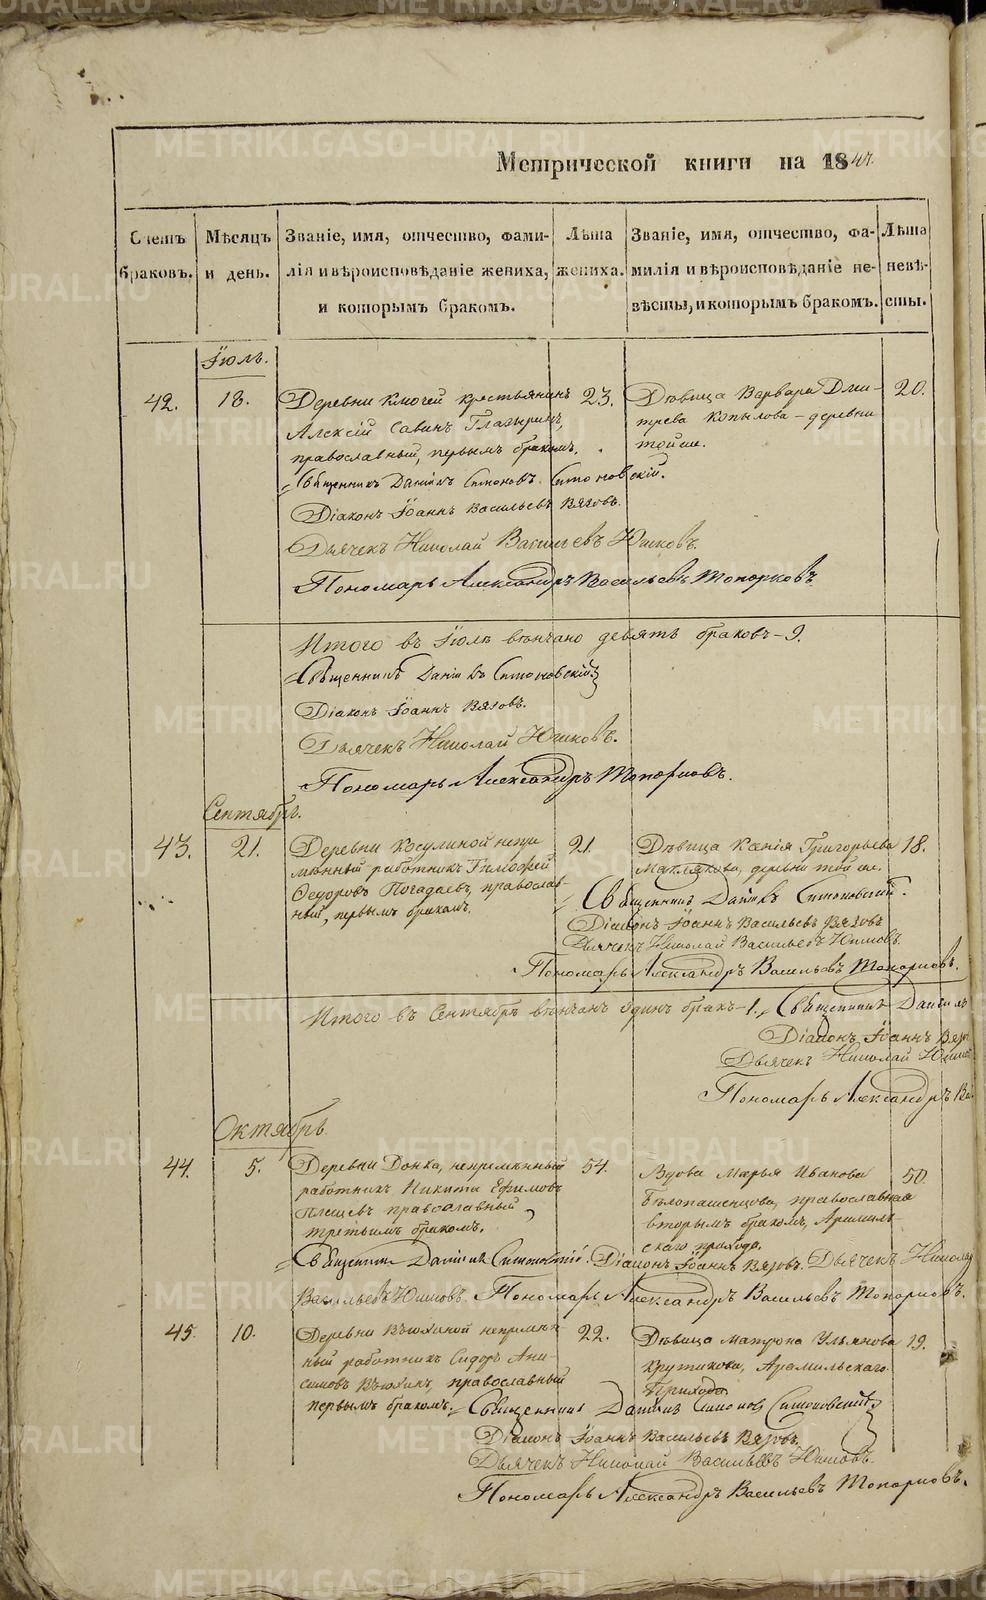 Метрической книги на 1847.
Счетъ браковъ.
Мѣсяцъ и день.
Званіе, имя, отчество, фами-
лія и вѣроисповѣданіе жениха,
и которымъ бракомъ.
Лѣта жениха.
Званіе, имя, отчество, фа-
милія и вѣроисповѣданіе не-
вѣсты, и которымъ бракомъ.
Лѣта невѣ-
сты.
Іюль.
42. 18. Деревни Ключей крестьянинъ 23. Дѣвица Варвара Дми- 20.
Алексій Савинъ Глазыринъ, трева Копылова – деревни
православный, первымъ бракомъ. тойже.
Священникъ Даніилъ Симоновъ Симоновскій.
Діаконъ Іоаннъ Васильевъ Вязовъ.
Дьячекъ Николай Васильевъ Юшковъ.
Пономарь Александръ Васильевъ Топорковъ
Итого въ Іюлѣ вѣнчано девять браковъ – 9.
Священникъ Даніилъ Симоновскій
Діаконъ Іоаннъ Вязовъ.
Дьячекъ Николай Юшковъ.
Пономарь Александръ Топорковъ.
Сентябрь.
43. 21. Деревни Косулиной непре 21. Дѣвица Ксенія Григорьева 18.
мѣнный работникъ Тимофей деревни той же.
Ѳедоровъ Погадаевъ, православ-
ный, первымъ бракомъ.
Священникъ Даніилъ Симоновскій.
Діаконъ Іоаннъ Васильевъ Вязовъ
Дьячекъ Николай Васильевъ Юшковъ.
Пономарь Александръ Васильевъ Топорковъ.
Итого въ Сентябрѣ вѣнчанъ одинъ бракъ – 1. Священникъ Даніилъ
Діаконъ Іоаннъ Вязо
Дьячекъ Николай Юшков
Пономарь Александръ Ва
Октябрь
44. 5. Деревни непремѣнный 54. Вдова Марья Иванова 50.
работникъ Никита Ефимовъ Бѣлопашенцова, православная
Плещевъ православный вторымъ бракомъ, Арамиль-
третьимъ бракомъ. скаго прихода.
Священникъ Даніилъ Симоновскій. Діаконъ Іоаннъ Вязовъ. Дьячекъ Николай
Васильевъ Юшковъ. Пономарь Александръ Васильевъ Топорковъ.
45. 10. Деревни Вьюхиной непремѣн- 22. Дѣвица Матрона Ульянова 19.
ный работникъ Сидоръ Ани- Крутикова, Арамильскаго
симовъ Вьюхинъ, православный Прихода
первымъ бракомъ. Священникъ Даніилъ Симоновъ Симоновскій
Діаконъ Іоаннъ Васильевъ Вязовъ.
Дьячекъ Николай Васильевъ Юшковъ.
Пономарь Александръ Васильевъ Топорковъ.
METRIKI.GASO-URAL.RU